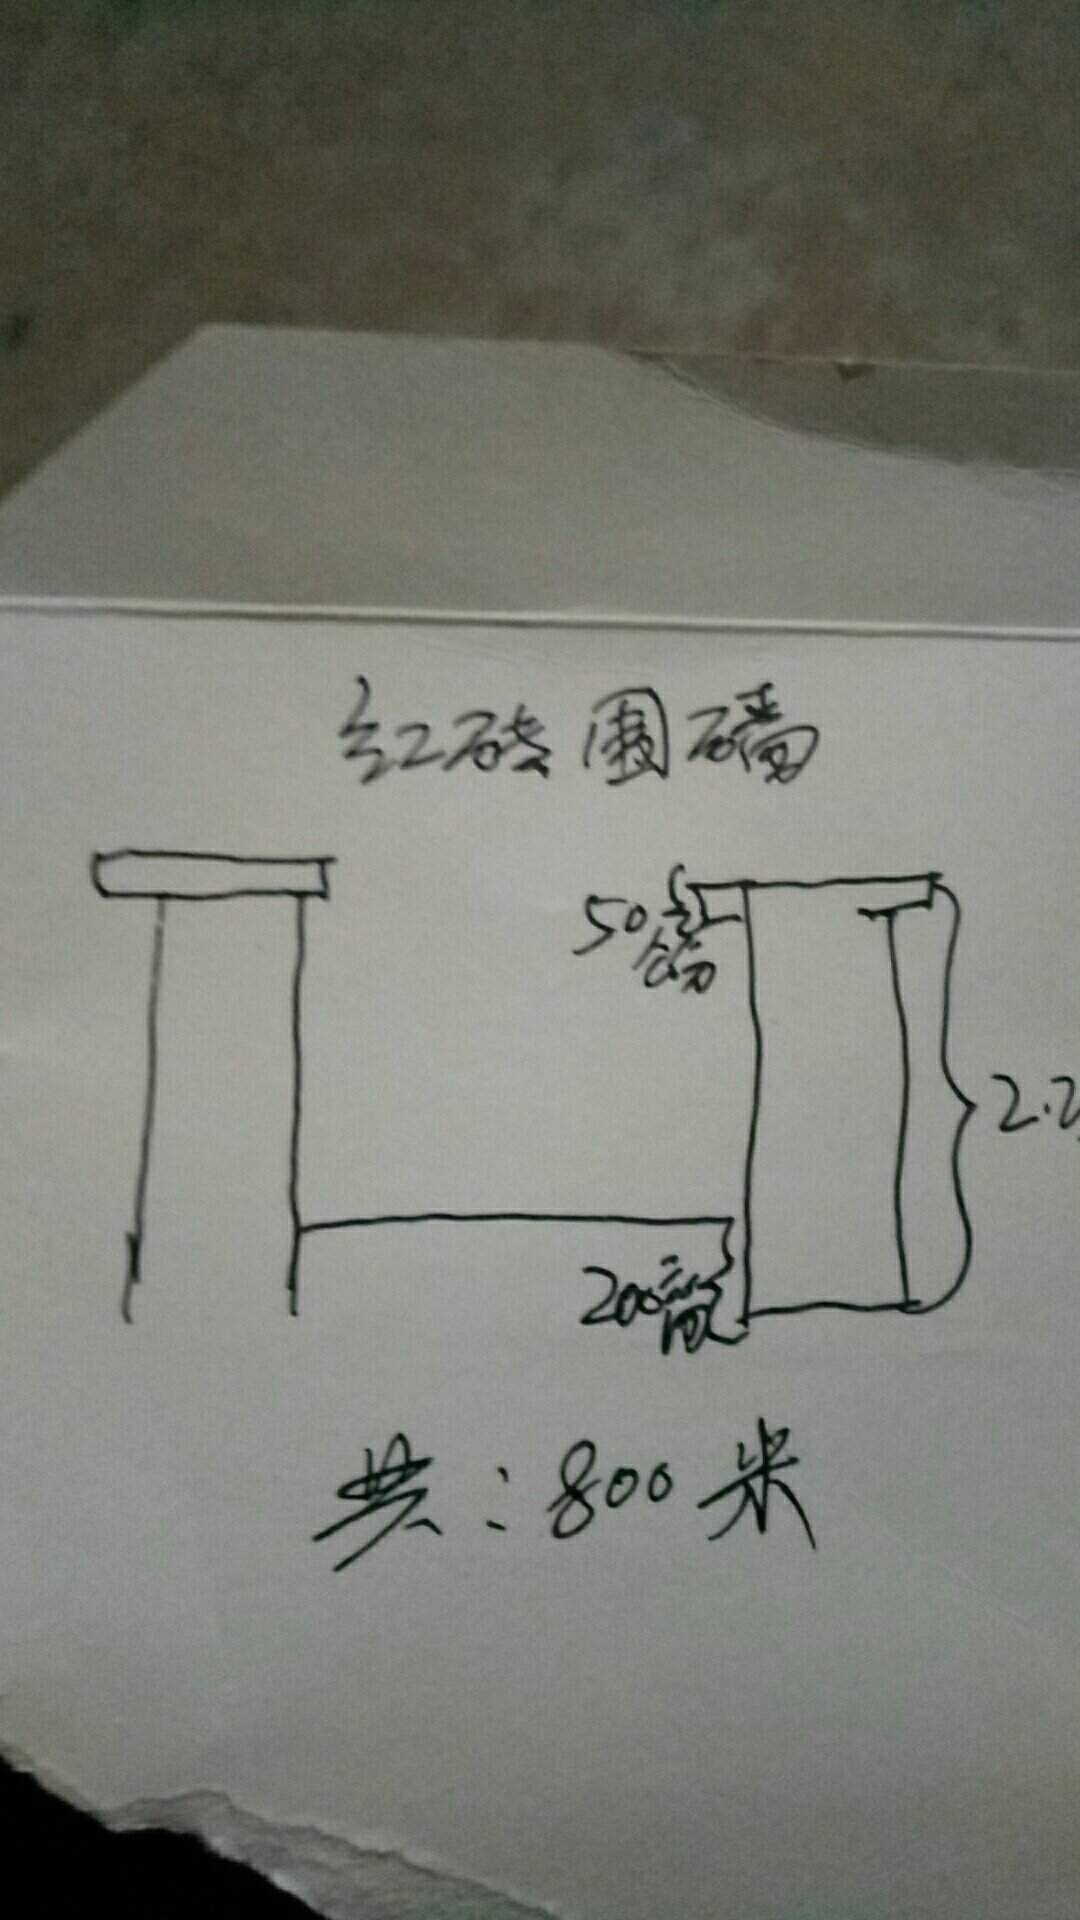 红砖围墙
50高
2.2
200高
共：800米